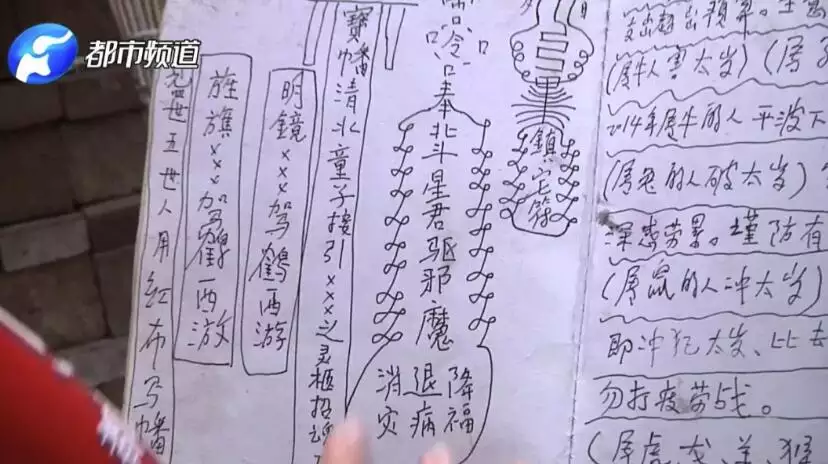 都市频道
世五世人用红布写幡
旌旗×××驾鶴西游
明鏡×××驾鶴西游
寶幡清北童子接引×××之灵柩招魂
奉北斗星君驱邪魔
消灾
退病
降福
鎮宅符
支出超出预算。
(属牛人害太岁) (属
2014年属牛的人 平波下
(属兔的人破太岁)
深感劳累。谨防有
(属鼠的人冲太岁)
即冲犯太岁、比去
勿打疲劳战。
(属虎、龙、羊、猴